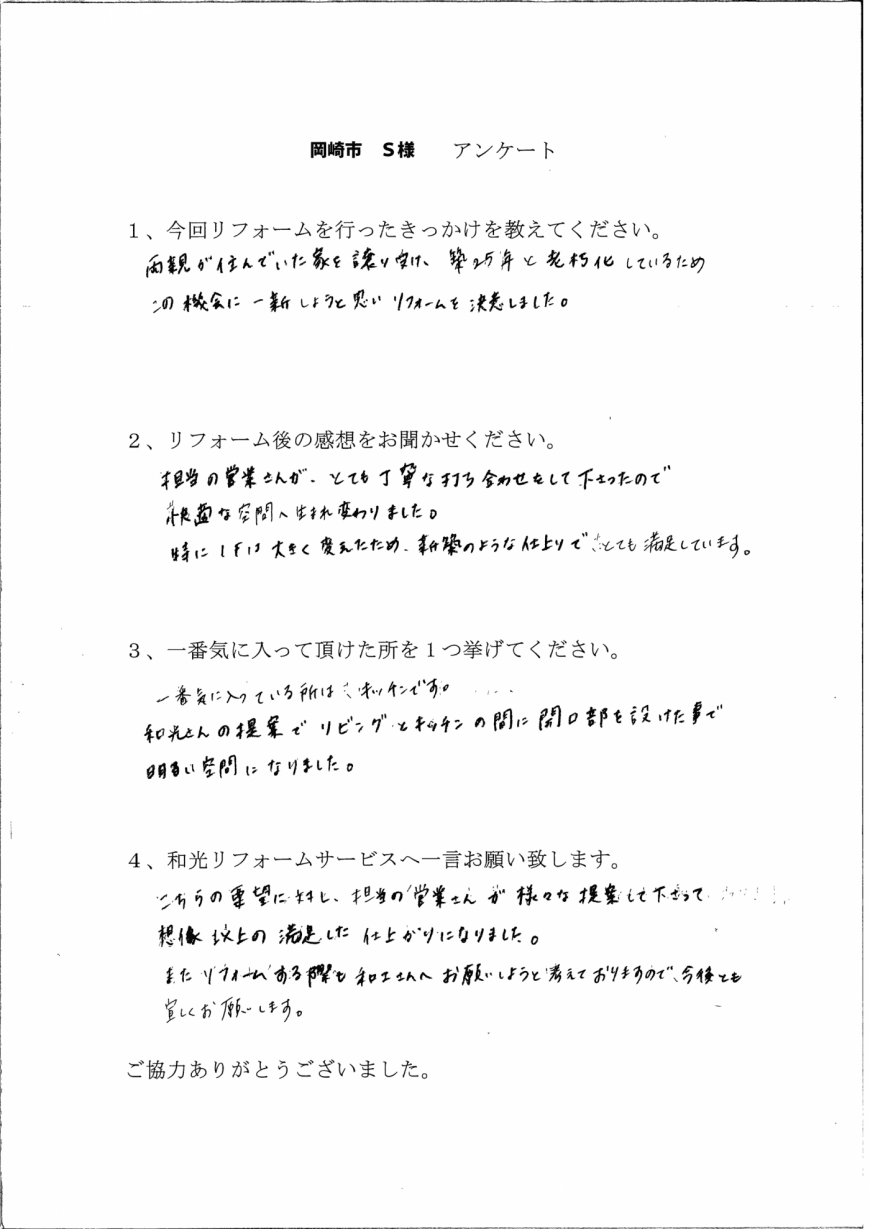 岡崎市 S様 アンケート
1、今回リフォームを行ったきっかけを教えてください。
両親が住んでいた家を譲り受け、築25年と老朽化しているため
この機会に一新しようと思いリフォームを決意しました。
2、リフォーム後の感想をお聞かせください。
担当の営業さんが、とても丁寧な打ち合わせをして下さったので
快適な空間へ生まれ変わりました。
特に1Fは大きく変えたため、新築のような仕上りでとても満足しています。
3、一番気に入って頂けた所を1つ挙げてください。
一番気に入っている所はキッチンです。
和光さんの提案でリビングとキッチンの間に開口部を設けた事で
明るい空間になりました。
4、和光リフォームサービスへ一言お願い致します。
こちらの要望に対し、担当の営業さんが様々な提案して下さって
想像以上の満足した仕上がりになりました。
またリフォームする際も和工さんへお願いしようと考えておりますので、今後とも
宜しくお願いします。
ご協力ありがとうございました。